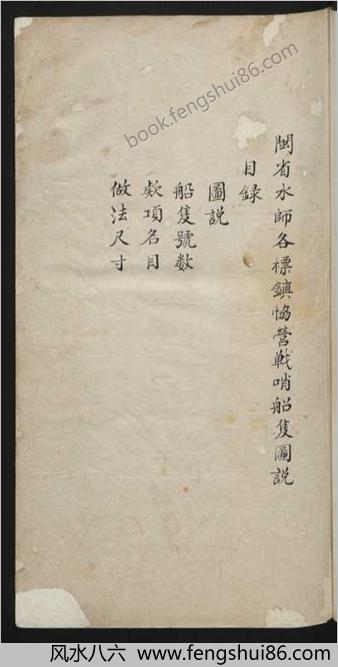 閩省水師各標鎮協營戰哨船隻圖説
目録
圖説
船隻號數
欵項名目
做法尺寸
book.fengshui86.com
风水八六 www.fengshui86.com